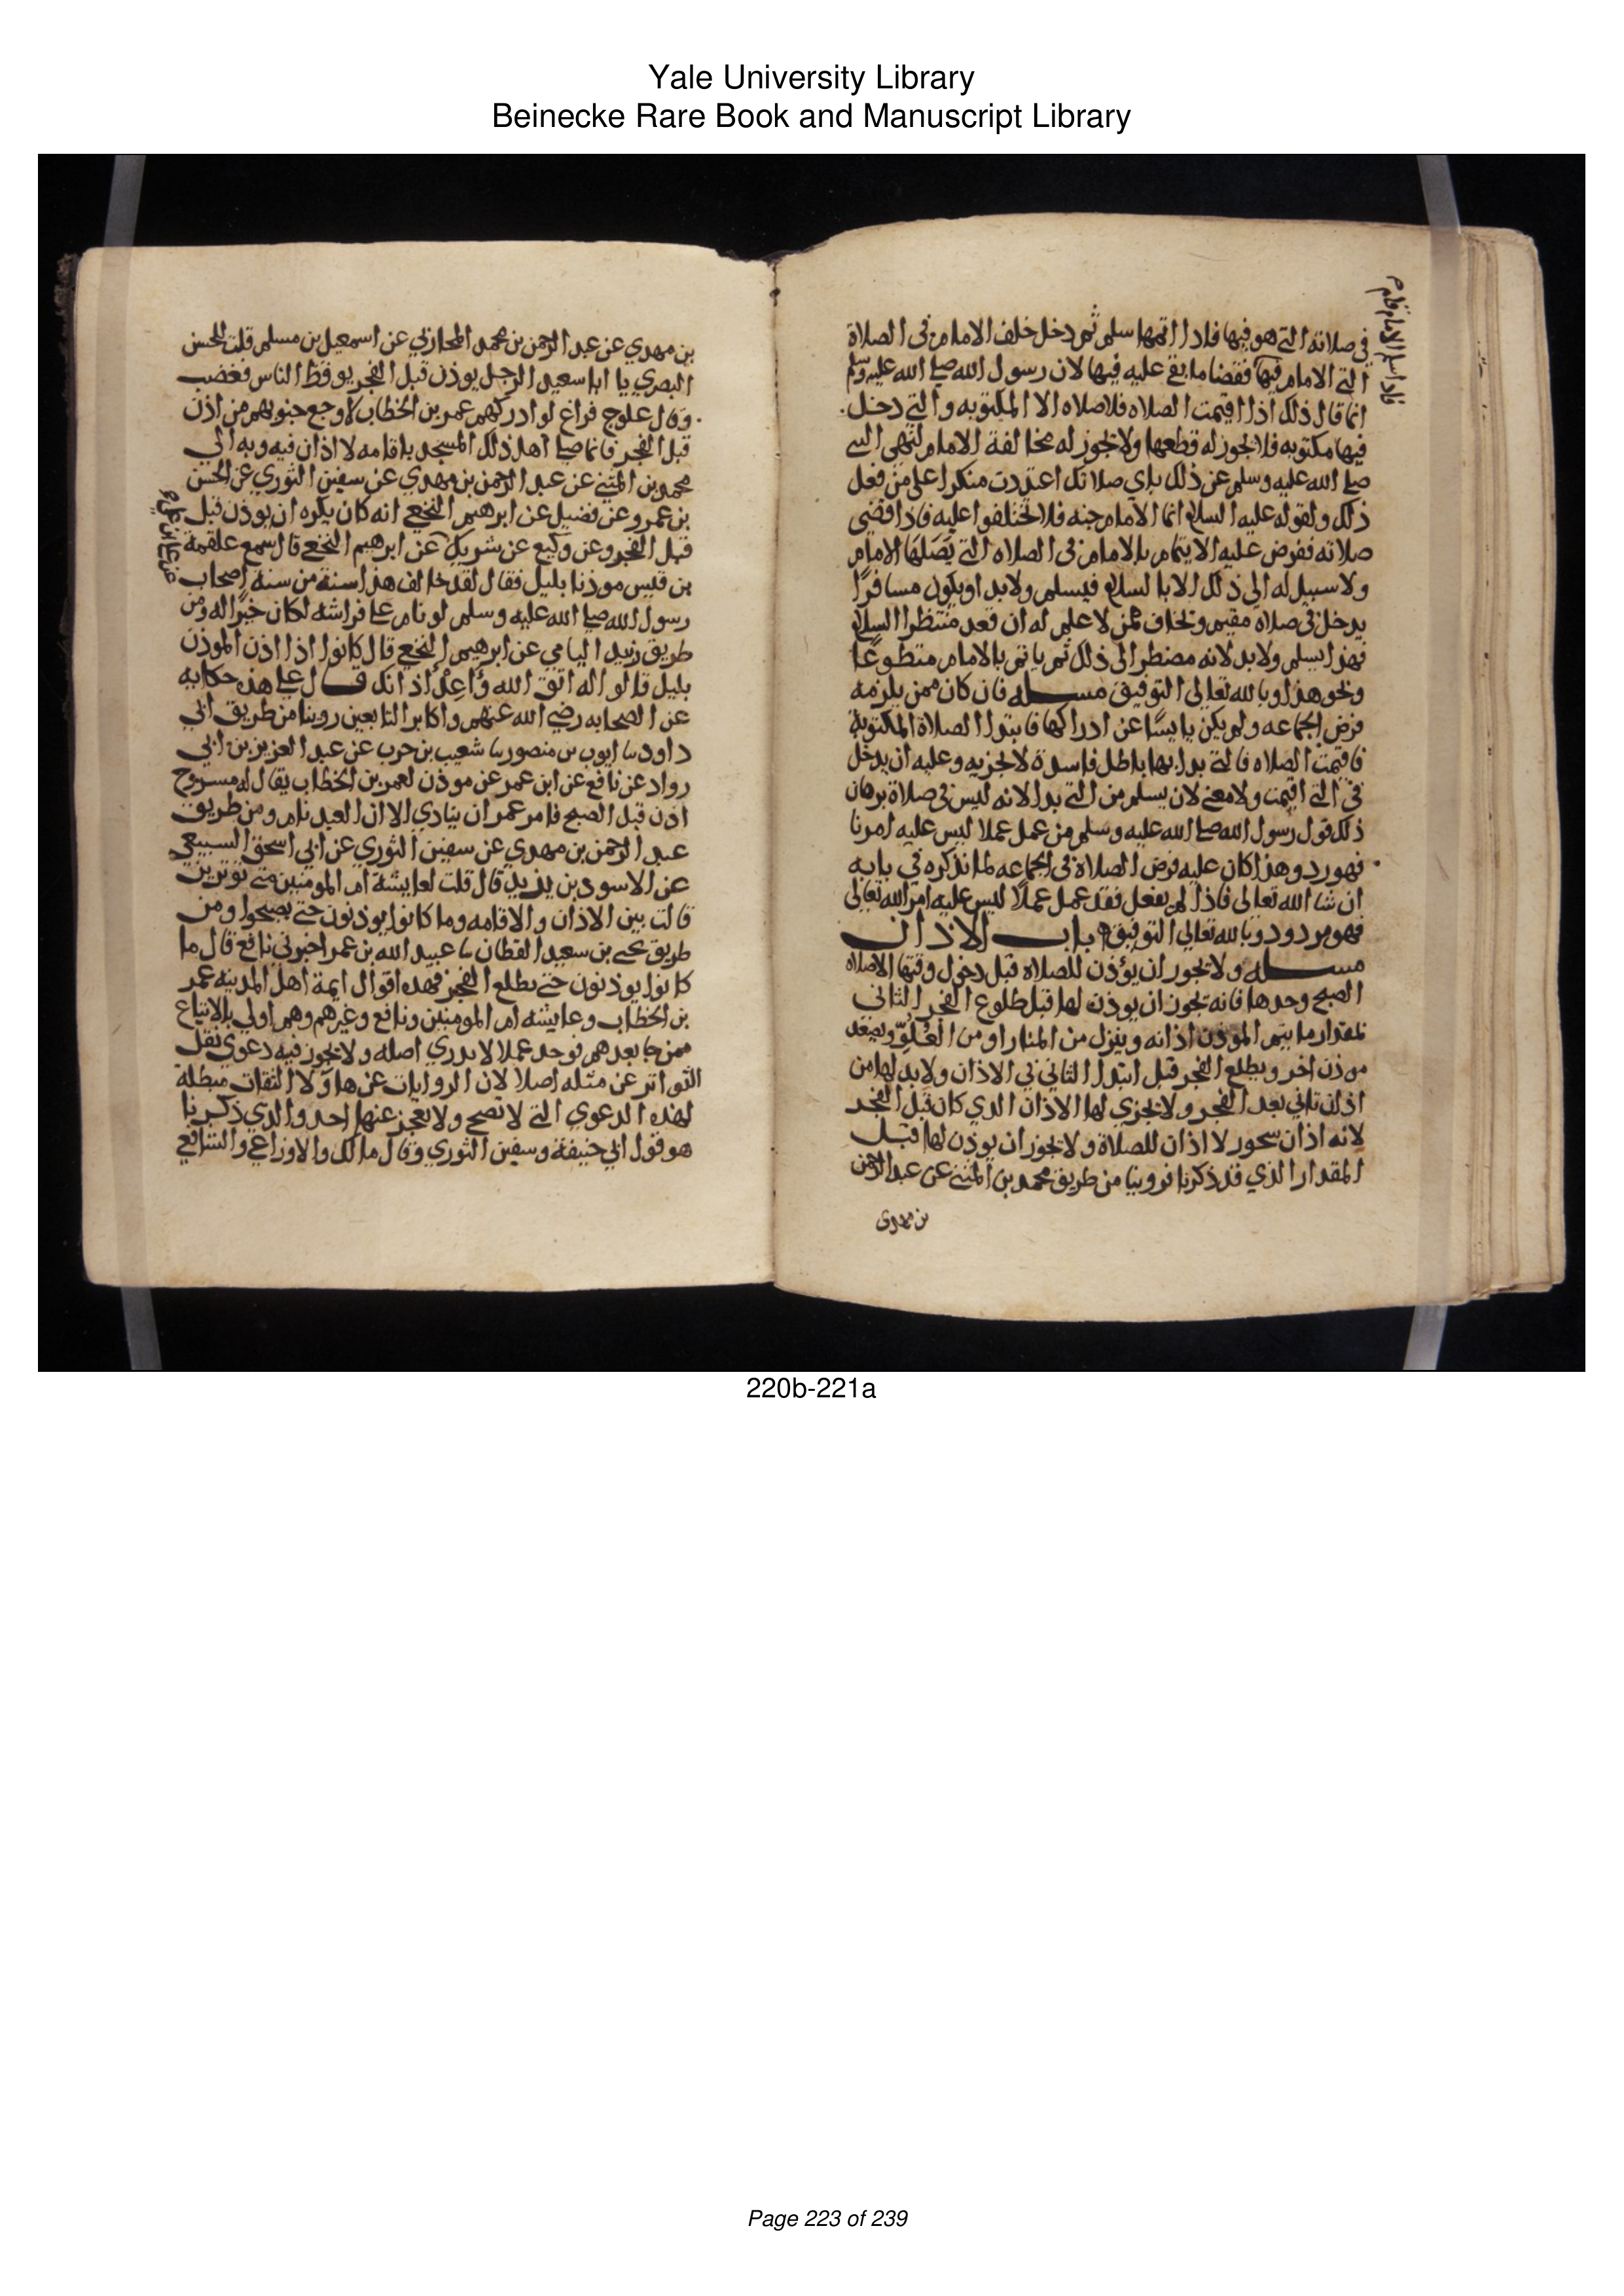 Yale University Library
Beinecke Rare Book and Manuscript Library
فاذا سلم الامام قام
في صلاته التي هو فيها فاذا اتمها سلم ثم دخل خلف الامام في الصلاة
التي الامام فيها فقضا ما بقي عليه فيها لان رسول الله صلي الله عليه وسلم
انما قال ذلك اذا اقيمت الصلاه فلا صلاه الا المكتوبه والتي دخل
فيها مكتوبه فلا يجوز له قطعها ولا يجوز له مخالفة الامام لنهي النبي
صلي الله عليه وسلم عن ذلك باي صلاتك اعتددت منكرا علي من فعل
ذلك ولقوله عليه السلام انما الامام جنه فلا تختلفوا عليه فاذا قضي
صلاته ففرض عليه الايتمام بالامام في الصلاه التي يصلها الامام
ولا سبيل له الي ذلك الا بالسلام فيسلم ولابد او يكون مسافرا
يدخل في صلاه مقيم وتخاف ممن لا علم له ان قعد منتظرا السلام
فهذا يسلم ولابد لانه مضطر الى ذلك ثم ياتم بالامام متطوعا
ونحو هذا وبالله تعالى التوفيق مسله فان كان ممن يلزمه
فرض الجماعه ولم يكن يايسا عن ادراكها فابتدا الصلاة المكتوبة
فاقيمت الصلاه فالتي بدا بها باطل فاسدة لا تجزيه وعليه ان يدخل
في التي اقيمت ولا معنى لان يسلم من التي بدا لانه ليس في صلاة برهان
ذلك قول رسول الله صلي الله عليه وسلم من عمل عملا ليس عليه امرنا
فهو رد وهذا كان عليه فرض الصلاة في الجماعه لما نذكره في بابه
ان شا الله تعالى فاذا لم يفعل فقد عمل عملا ليس عليه امر الله تعالى
فهو مردود وبالله تعالي التوفيق باب الاذان
مسله ولا يجوز ان يؤذن للصلاه قبل دخول وقتها الا صلاه
الصبح وحدها فانه يجوز ان يوذن لها قبل طلوع الفجر الثاني
بمقدار ما يتم الموذن اذانه وينزل من المنار او من العلو ويصعد
موذن اخر ويطلع الفجر قبل ابتدا الثاني في الاذان ولابد لها من
اذان ثاني بعد الفجر ولا يجزي لها الاذان الذي كان قبل الفجر
لانه اذان سحور لا اذان للصلاة ولا يجوز ان يوذن لها قبل
المقدار الذي قد ذكرنا فروينا من طريق محمد بن المثنى عن عبد الرحمن
بن مهدى
بن مهدي عن عبد الرحمن بن محمد المحاربي عن اسمعيل بن مسلم قلت للحسن
البصري يا ابا سعيد الرجل يوذن قبل الفجر يوقظ الناس فغضب
وقال علوج فراغ لو ادركهم عمر بن الخطاب لاوجع جنوبهم من اذن
قبل الفجر فانما صلي اهل ذلك المسجد باقامه لا اذان فيه وبه الي
محمد بن المثني عن عبد الرحمن بن مهدي عن سفين الثوري عن الحسن
بن عمرو عن فضيل عن ابرهيم النخعي انه كان يكره ان يوذن قبل
قبل الفجر وعن وكيع عن شريك عن ابرهيم النخعي قال سمع علقمة
بن قيس موذنا بليل فقال لقد خالف هذا سنة من سنة اصحاب
رسول الله صلي الله عليه وسلم لو نام علي فراشه لكان خيرا له ومن
طريق زبيد اليامي عن ابرهيم النخعي قال كانوا اذا اذن الموذن
بليل قالوا له اتق الله واعد اذانك قال علي هذه حكايه
عن الصحابه رضي الله عنهم واكابر التابعين روينا من طريق ابي
داود نا ايوب بن منصور نا شعيب بن حرب عن عبد العزيز بن ابي
رواد عن نافع عن ابن عمر عن موذن لعمر بن الخطاب يقال له مسروح
اذن قبل الصبح فامر عمر ان ينادي الا ان العبد نام ومن طريق
عبد الرحمن بن مهدي عن سفين الثوري عن ابي اسحق السبيعي
عن الاسود بن يزيد قال قلت لعايشة ام المومنين متي توترين
قالت بين الاذان والاقامه وما كانوا يوذنون حتي يصبحوا ومن
طريق يحيى بن سعيد القطان نا عبيد الله بن عمر اخبرني نافع قال ما
كانوا يوذنون حتي يطلع الفجر فهذه اقوال ايمة اهل المدينه عمر
بن الخطاب وعايشه ام المومنين ونافع وغيرهم وهم اولي بالاتباع
ممن جا بعدهم فوجد عملا لا يدري اصله ولا يجوز فيه دعوي نقل
التواتر عن مثله اصلا لان الروايات عن هاولا الثقات مبطلة
لهذه الدعوي التي لا تصح ولا يعجز عنها احد والذي ذكرنا
هو قول ابي حنيفة وسفين الثوري وقال مالك والاوزاعي والشافعي
220b-221a
Page 223 of 239